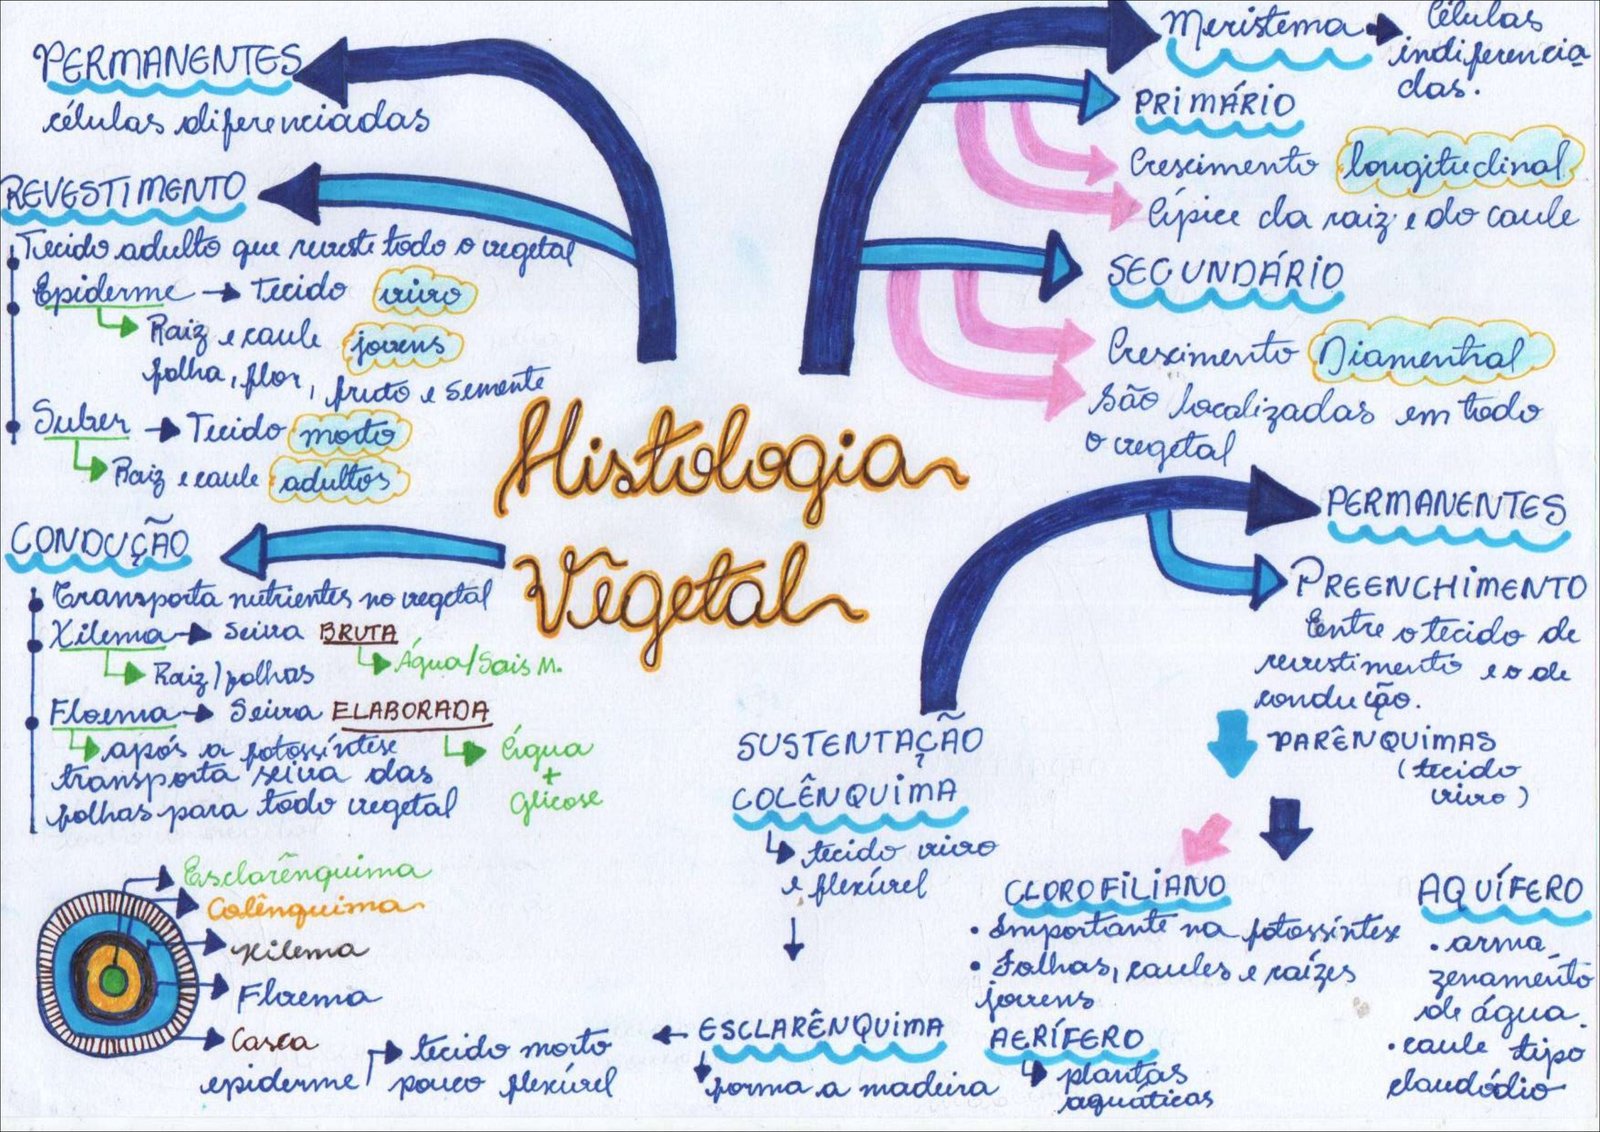 PERMANENTES
células diferenciadas
REVESTIMENTO
Tecido adulto que reveste todo o vegetal
Epiderme → Tecido vivo
Raiz e caule jovens
folha, flor, fruto e semente
Suber → Tecido morto
Raiz e caule adultos
CONDUÇÃO
Transporta nutrientes no vegetal
Xilema → Seiva BRUTA
Raiz/folhas
Água/Sais M.
Floema → Seiva ELABORADA
após a fotossíntese
transporta seiva das
folhas para todo vegetal
Água
+
Glicose
Esclarênquima
Colênquima
Xilema
Floema
Casca
epiderme
Histologia
Vegetal
Meristema → Células
indiferencia
das.
PRIMÁRIO
Crescimento longitudinal
Ápice da raiz e do caule
SEGUNDÁRIO
Crescimento Diamentral
São localizadas em todo
o vegetal
PERMANENTES
PREENCHIMENTO
Entre o tecido de
revestimento e o de
condução.
PARÊNQUIMAS
(tecido
vivo)
SUSTENTAÇÃO
COLÊNQUIMA
tecido vivo
e flexível
ESCLARÊNQUIMA
forma a madeira
tecido morto
pouco flexível
CLOROFILIANO
• Importante na fotossíntese
• Folhas, caules e raízes
jovens
AERÍFERO
plantas
aquáticas
AQUÍFERO
• arma
zenamento
de água.
• caule tipo
claudódio